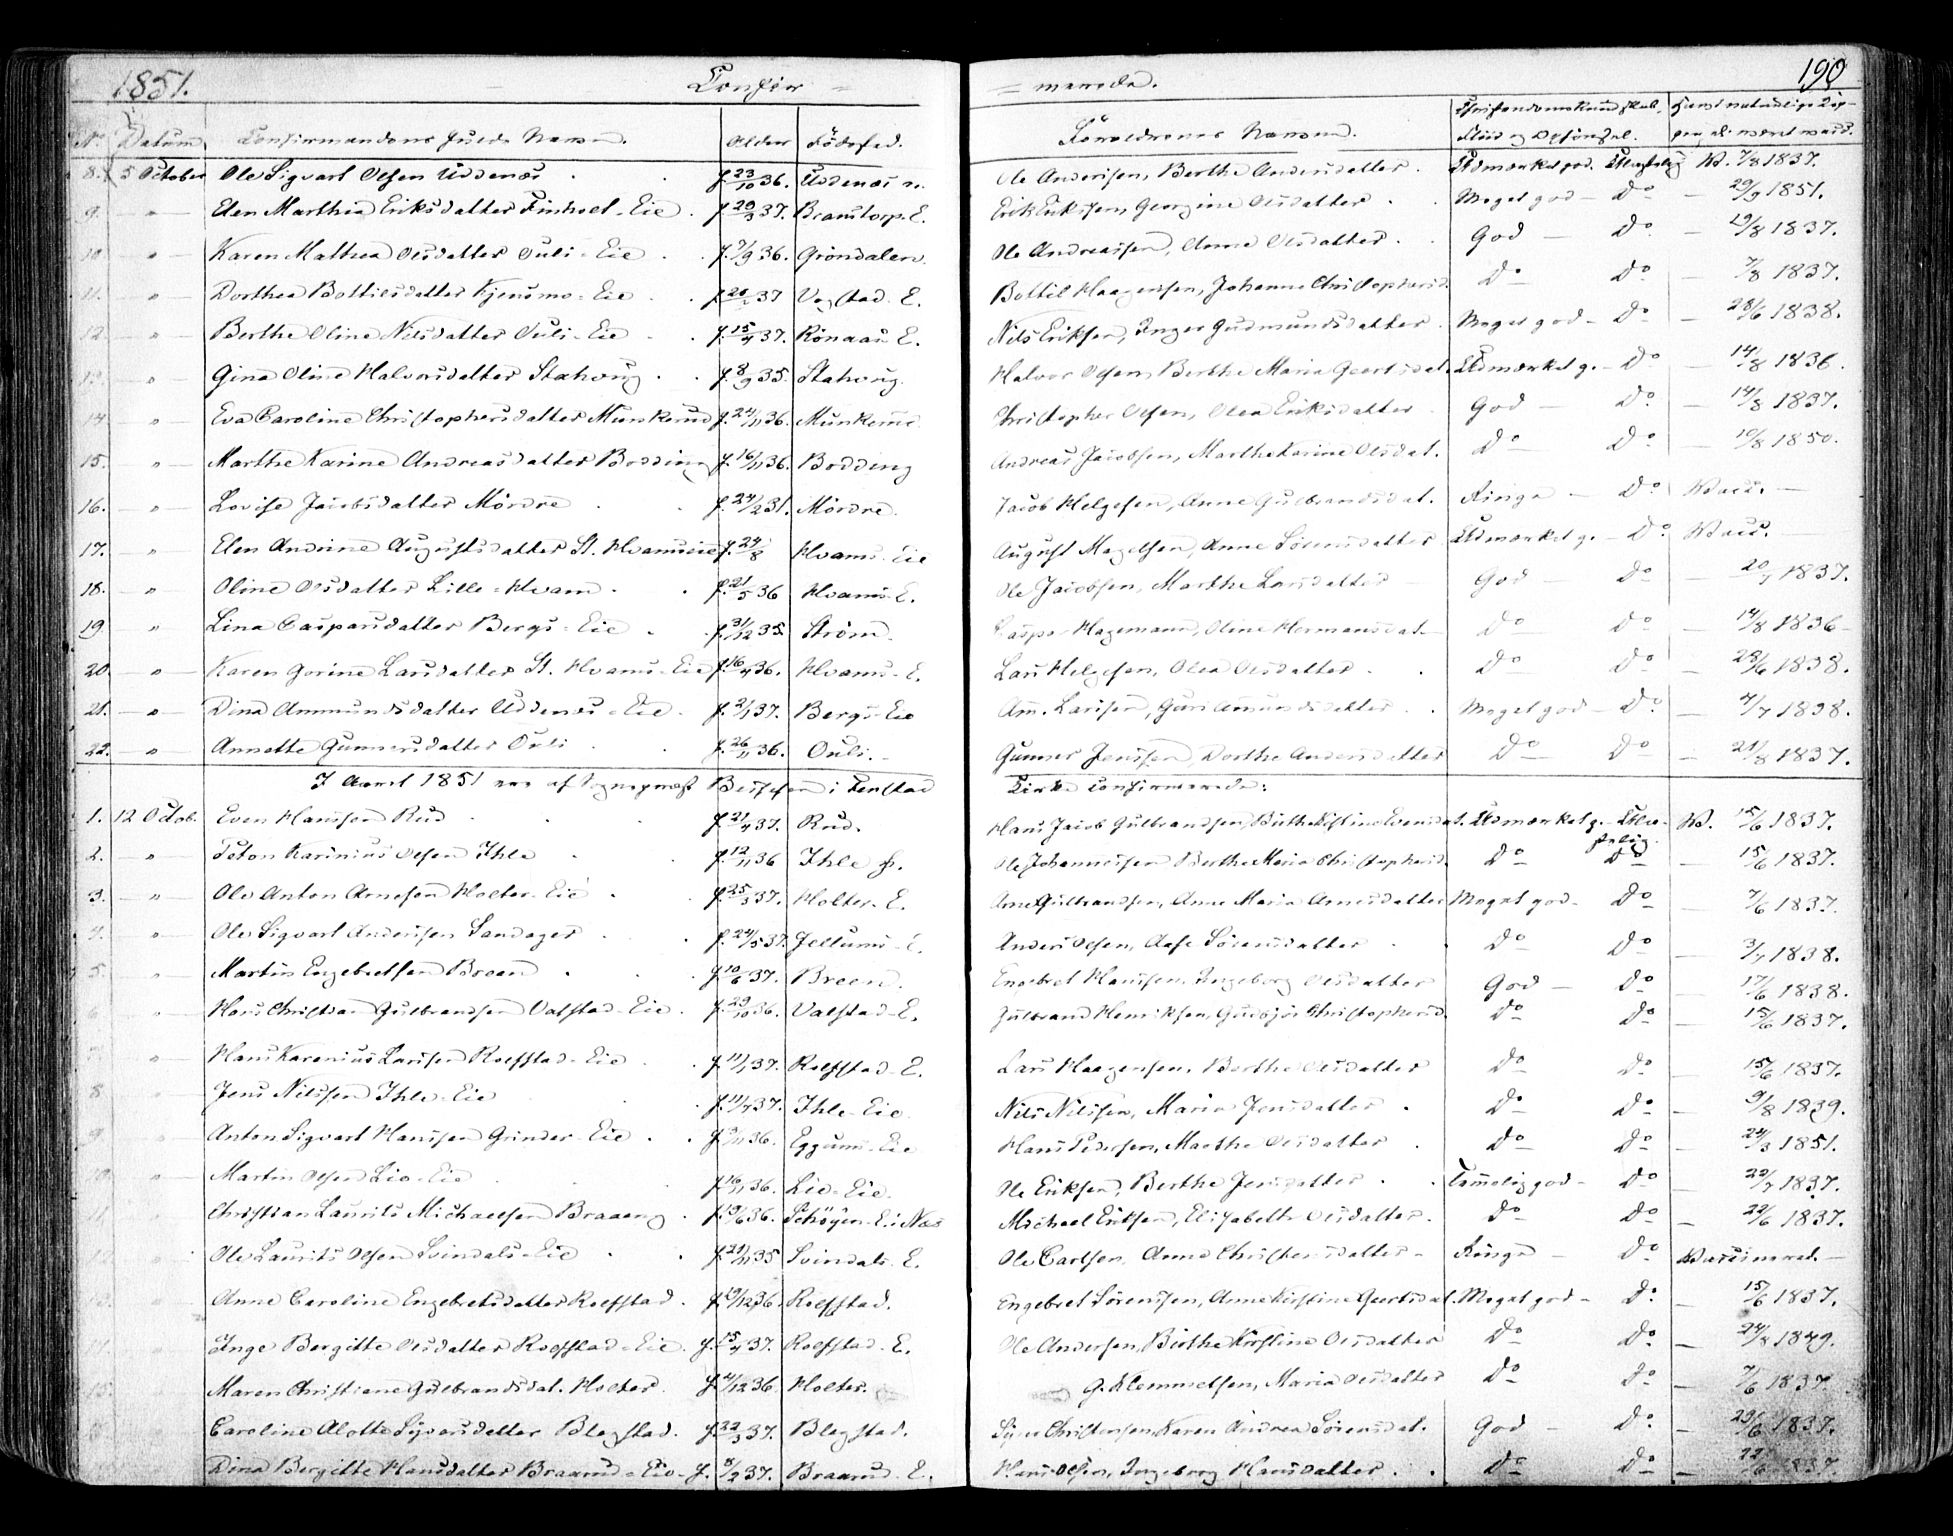 1851. Confir- = mereda. 190
No Datum Confirmandens fulde Navn. Alder Födested. Foreldrenes Navne. Christendoms Kundskab, Flid og Opförsel.
8. 5 October Ole Sigvart Olsen Uddenæs f. 23/10 36. Uddenæs Ole Andersen, Berthe Andersdatter Udmærket god. V. 7/8 1837.
9. " Elen Marthea Eriksdatter Finholt-Eie f. 20/3 37. Branstorp. E. Erik Eriksen, Georgine Olsdatter Meget god Do 29/9 1851.
10 " Karen Mathea Olsdatter Ouli-Eie f. 7/9 36. Gröndalen. Ole Andreassen, Anne Olsdatter God Do 19/8 1837.
11. " Dorthea Bottilsdatter Kjensmo-Eie 37 Vagstad. E. Bottil Haagensen, Johanne Christophersd. Do Do 7/8 1837.
12 " Berthe Oline Nilsdatter Ouli-Eie f. 15/4 37. Rönaas E. Nils Eriksen, Inger Gudmundsdatter Meget god Do 28/6 1838.
13 " Gina Oline Halvorsdatter Stahvug f. 8/9 35. Stahvug. Halvor Olsen, Berthe Maria Geertsdat. Udmærket g. Do 14/8 1836.
14 " Eva Caroline Christophersdatter Munkerud f. 24/11 36. Munkerud Christopher Olsen, Olea Eriksdatter God Do 14/8 1837.
15. " Marthe Karine Andreasdatter Bodding f. 16/11 36. Bodding Andreas Jacobsen, Marthe Karine Olsdat. Do Do 10/8 1850.
16. " Lovise Jacobsdatter Mördre f. 24/2 31. Mördre. Jacob Helgesen, Anne Gulbrandsdat. Ringe Do Vacc.
17. " Elen Andrine Augustsdatter St. Hvamseie f. 24/8 Hvams-Eie August Magelsen, Anne Sörensdatter Udmærket g. Do Vacc.
18. " Oline Olsdatter Lille-Hvam f. 21/5 36 Hvams-E. Ole Jacobsen, Marthe Larsdatter God Do 20/7 1837.
19 " Lina Caspersdatter Bergs-Eie f. 31/12 35. Ström. Casper Hagemann, Oline Hermansdat. Do Do 14/8 1836
20. " Karen Gorine Larsdatter St. Hvams-Eie f. 16/4 36. Hvams-E. Lars Helgesen, Olea Olsdatter Do Do 28/6 1838.
21. " Dina Ammundsdatter Uddenæs-Eie f. 2/1 37. Bergs-Eie Am. Larssen, Guri Amundsdatter Meget god Do 4/7 1838.
22. " Annette Gunnersdatter Ouli f. 26/11 36. Ouli. Gunner Jenssen, Dorthe Andersdatter Do Do 21/8 1837.
I Aaret 1851 ere af Sognepræst i Fenstad Kirke confirmerede:
1. 12 Octob. Even Hanssen Rud f. 21/4 37. Rud. Hans Jacob Gulbrandsen, Berthe Kirstine Evensdat. Udmærket g. V. 15/6 1837.
2. " Peton Karinius Olsen Ihle f. 12/11 36 Ihle Ole Johannessen Berthe Maria Christophersd. Do Do 15/6 1837.
3. " Ole Anton Arnesen Holter-Eie f. 25/3 37. Holter-E. Arne Gulbrandsen, Anne Maria Arnesdatter Meget god Do 7/6 1837.
4. " Ole Sigvart Andersen Sandager f. 24/5 37. Jellums-E. Anders Olsen, Aase Sörensdatter Do Do 3/7 1838.
5. " Martin Engebretsen Breen f. 10/6 37. Breen. Engebret Hanssen, Ingeborg Olsdatter God Do 17/6 1838.
6 " Hans Christian Gulbrandsen Valstad-Eie f. 29/10 36. Valstad-E. Gulbrand Henriksen, Gudbjör Christophersd. Do Do 15/6 1837.
7. " Hans Karenius Larssen Rolfstad-Eie f. 11/1 37. Rolfstad. E. Lars Haagensen, Berthe Olsdatter Do Do 15/6 1837.
8 " Jens Nilssen Ihle-Eie f. 11/4 37. Ihle-Eie Nils Nilssen, Maria Jensdatter Do Do 9/8 1839.
9 " Anton Sigvart Hanssen Grinder-Eie 36. Eggums-Eie Hans Pedersen, Marthe Olsdatter Do Do 24/3 1851.
10. Martin Olsen Lie-Eie f. 16/11 36. Lie-Eie. Ole Eriksen, Berthe Jensdatter Temmelig god Do 22/7 1837.
11 Christian Laurits Michaelsen Braaeng f. 19/6 36. Schöyen-E. i Næs Michael Eriksen, Elisabeth Olsdatter Do Do 22/6 1837.
12 Ole Laurits Olsen Svindals-Eie f. 21/11 35 Svindals-E. Ole Carlsen, Anne Christensdatter Ringe Do Vaccineret.
13. Anne Caroline Engebretsdatter Rolfstad f. 19/12 36. Rolfstad. Engebret Sörenssen, Anne Kirstine Geertsdat. Meget god Do 15/6 1837.
14. Inge Bergitte Olsdatter Rolfstad-Eie f. 15/4 37. Rolfstad-E. Ole Andersen, Berthe Kirstine Olsdatter Do Do 24/8 1849.
15. Maren Christiane Gulbrandsdat. Holter f. 4/12 36. Holter. G. Klemmetsen, Maria Olsdatter Do Do 7/6 1837.
Caroline Alotte Syversdatter Blegstad. f. 22/3 37. Blegstad. Syver Christensen, Karen Andrea Sörensdat. God Do 29/6 1837.
Dina Bergitte Hansdatter Braarud-Eie f. 5/2 37. Braarud-E. Hans Olsen, Ingeborg Hansdatter Do Do 22/6 1837.